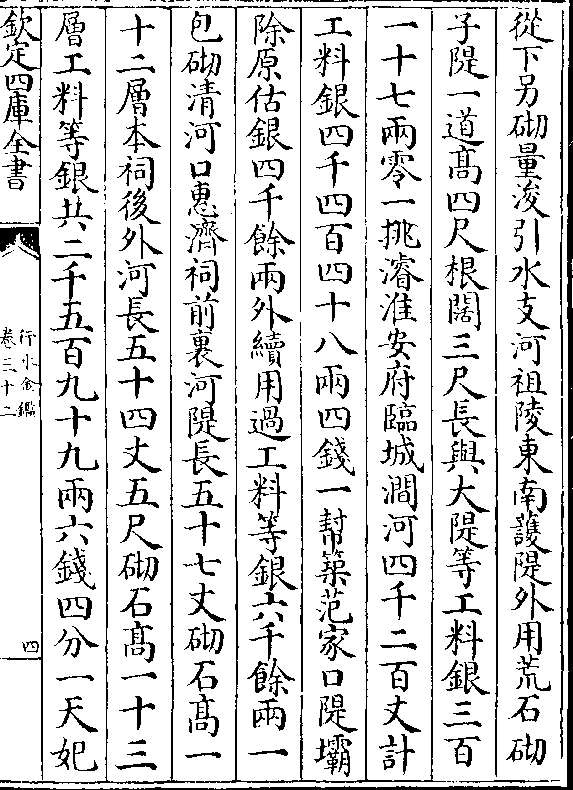 從下另砌量浚引水支河祖陵東南護隄外用荒石砌
子隄一道髙四尺根闊三尺長與大隄等工料銀三百
一十七兩零一挑濬淮安府臨城澗河四千二百丈計
工料銀四千四百四十八兩四錢一幇築范家口隄壩
除原估銀四千餘兩外續用過工料等銀六千餘兩一
包砌清河口惠濟祠前裏河隄長五十七丈砌石髙一
十二層本祠後外河長五十四丈五尺砌石髙一十三
層工料等銀共二千五百九十九兩六錢四分一天妃
欽定四庫全書
行水金鑑
卷三十二
四